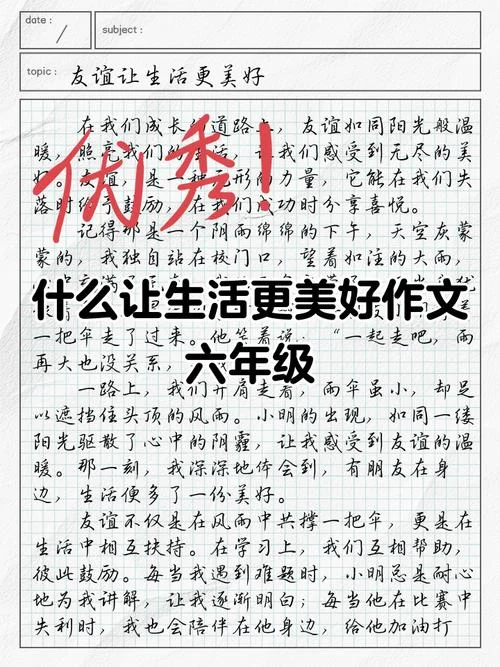 date:
subject:
topic: 友谊让生活更美好
在我们成长的道路上，友谊如同阳光般温
暖，照亮我们的生活，让我们感受到无尽的美
好。友谊，是一种无形的力量，它能在我们失
落时给予鼓励，在我们成功时分享喜悦。
优秀！
记得那是一个阴雨绵绵的下午，天空灰蒙
蒙的，我独自站在校门口，望着如注的大雨，
什么让生活更美好作文
一把伞走了过来。他笑着说：“一起走吧，雨
再大也没关系，
六年级
一路上，我们并肩走着，雨伞虽小，却足
以遮挡住头顶的风雨。小明的出现，如同一缕
阳光驱散了心中的阴霾，让我感受到友谊的温
暖。那一刻，我深深地体会到，有朋友在身
边，生活便多了一份美好。
友谊不仅是在风雨中共撑一把伞，更是在
生活中相互扶持。在学习上，我们互相帮助，
彼此鼓励。每当我遇到难题时，小明总是耐心
地为我讲解，让我逐渐明白；每当他在比赛中
失利时，我也会陪伴在他身边，给他加油打